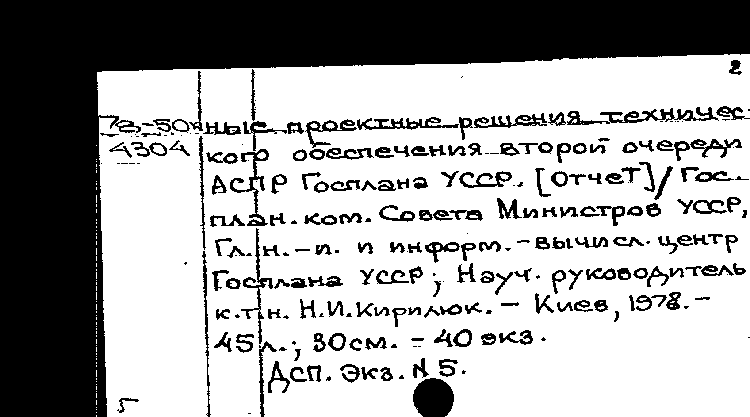 2
78-50к ные проектные решения техничес-
4304 кого обеспечения второй очереди
АСПР Госплана УССР. [Отчет]/ Гос.
план. ком. Совета Министров УССР,
Гл. н.-и. и информ.-вычисл. центр
Госплана УССР; Науч. руководитель
к.т.н. Н.И.Кирилюк. - Киев, 1978.-
45 л.; 30 см. - 40 экз.
Дсп. Экз. N 5.
5